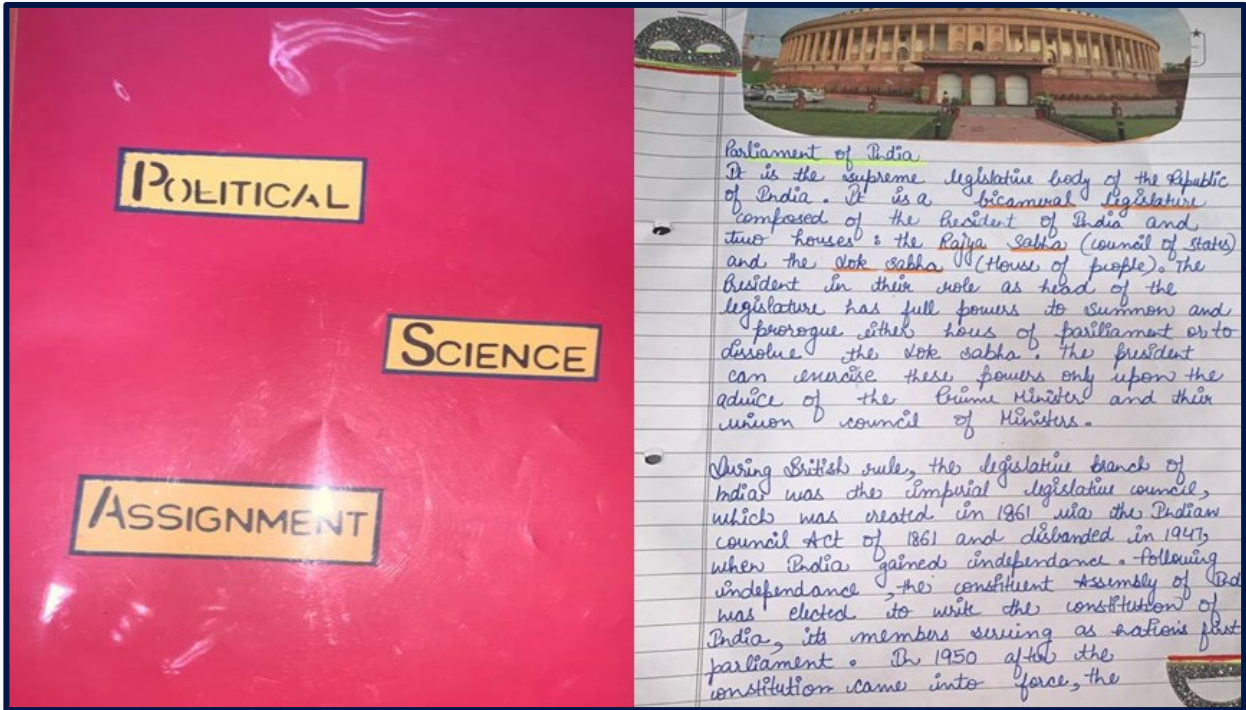 POLITICAL
SCIENCE
ASSIGNMENT
Parliament of India
It is the supreme legislative body of the Republic
of India. It is a bicameral legislature
composed of the President of India and
two houses : the Rajya Sabha (council of states)
and the Lok Sabha (House of people). The
President in their role as head of the
legislature has full powers to summon and
prorogue either hous of pariliament or to
dissolve the Lok Sabha. The president
can exercise these powers only upon the
advice of the Prime Minister and their
union council of Ministers.
During British rule, the legislative branch of
India was the imperial legislative council,
which was created in 1861 via the Indian
council Act of 1861 and disbanded in 1947,
when India gained independance. following
independance, the constituent Assembly of Ind
was elected to write the constitution of
India, its members serving as nation's first
parliament. In 1950 after the
constitution came into force, the